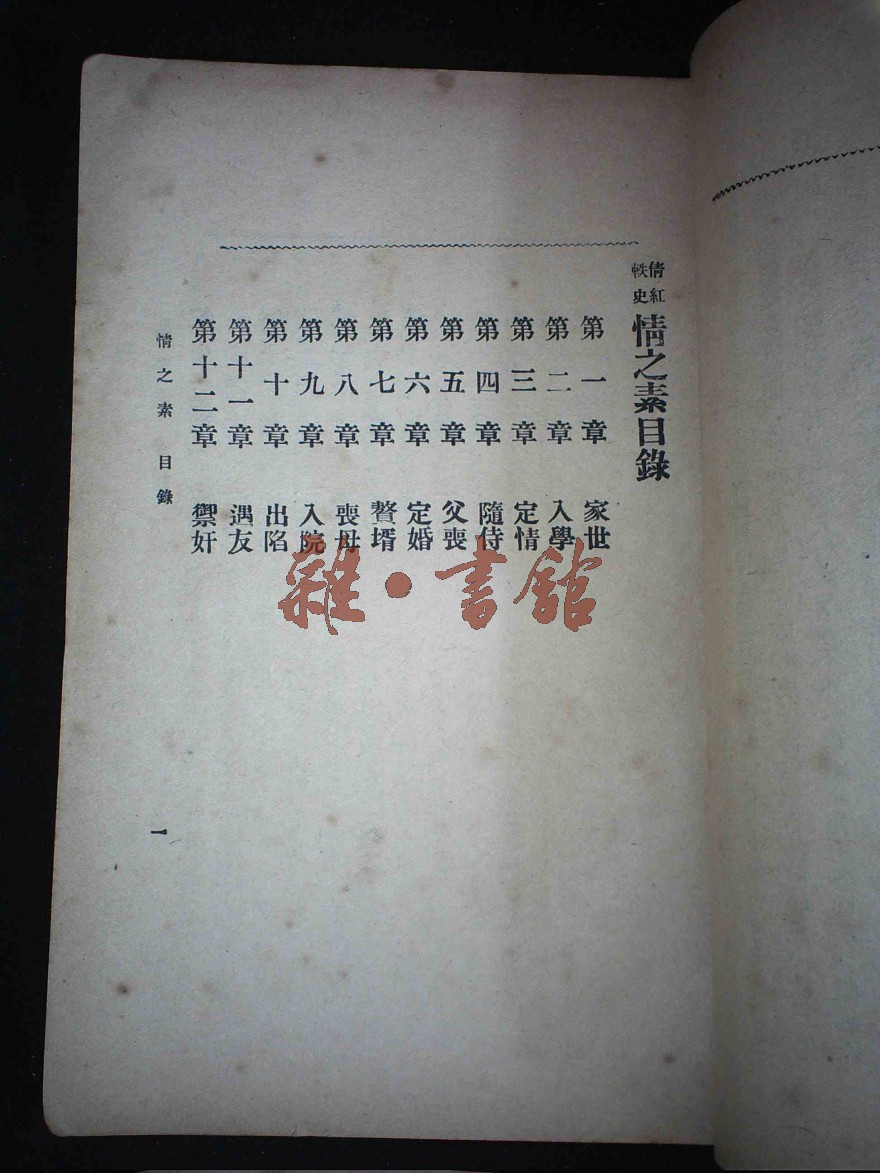 倩紅軼史 情之素目錄
第一章 家世
第二章 入學
第三章 定情
第四章 隨侍
第五章 父喪
第六章 定婚
第七章 贅壻
第八章 喪母
第九章 入院
第十章 出陷
第十一章 遇友
第十二章 禦奸
情之素 目錄
一
雜·書館